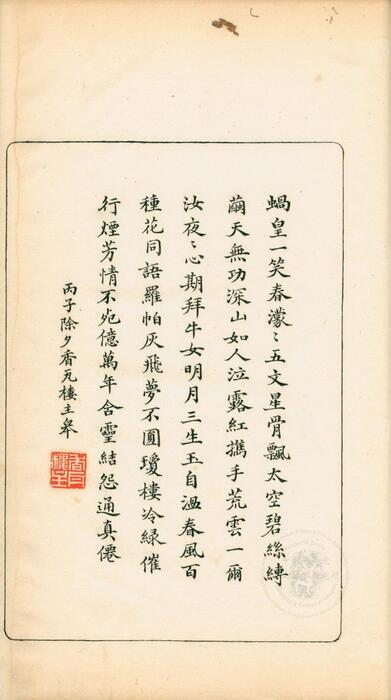 蝸皇一笑春濛〻五文星骨飄太空碧絲縳
繭天無功深山如人泣露紅攜手荒雲一爾
汝夜〻心期拜牛女明月三生玉自溫春風百
種花同語羅帕灰飛夢不圓瓊樓冷綠催
行煙芳情不死億萬年含靈結怨通真僊
丙子除夕香瓦樓主皋